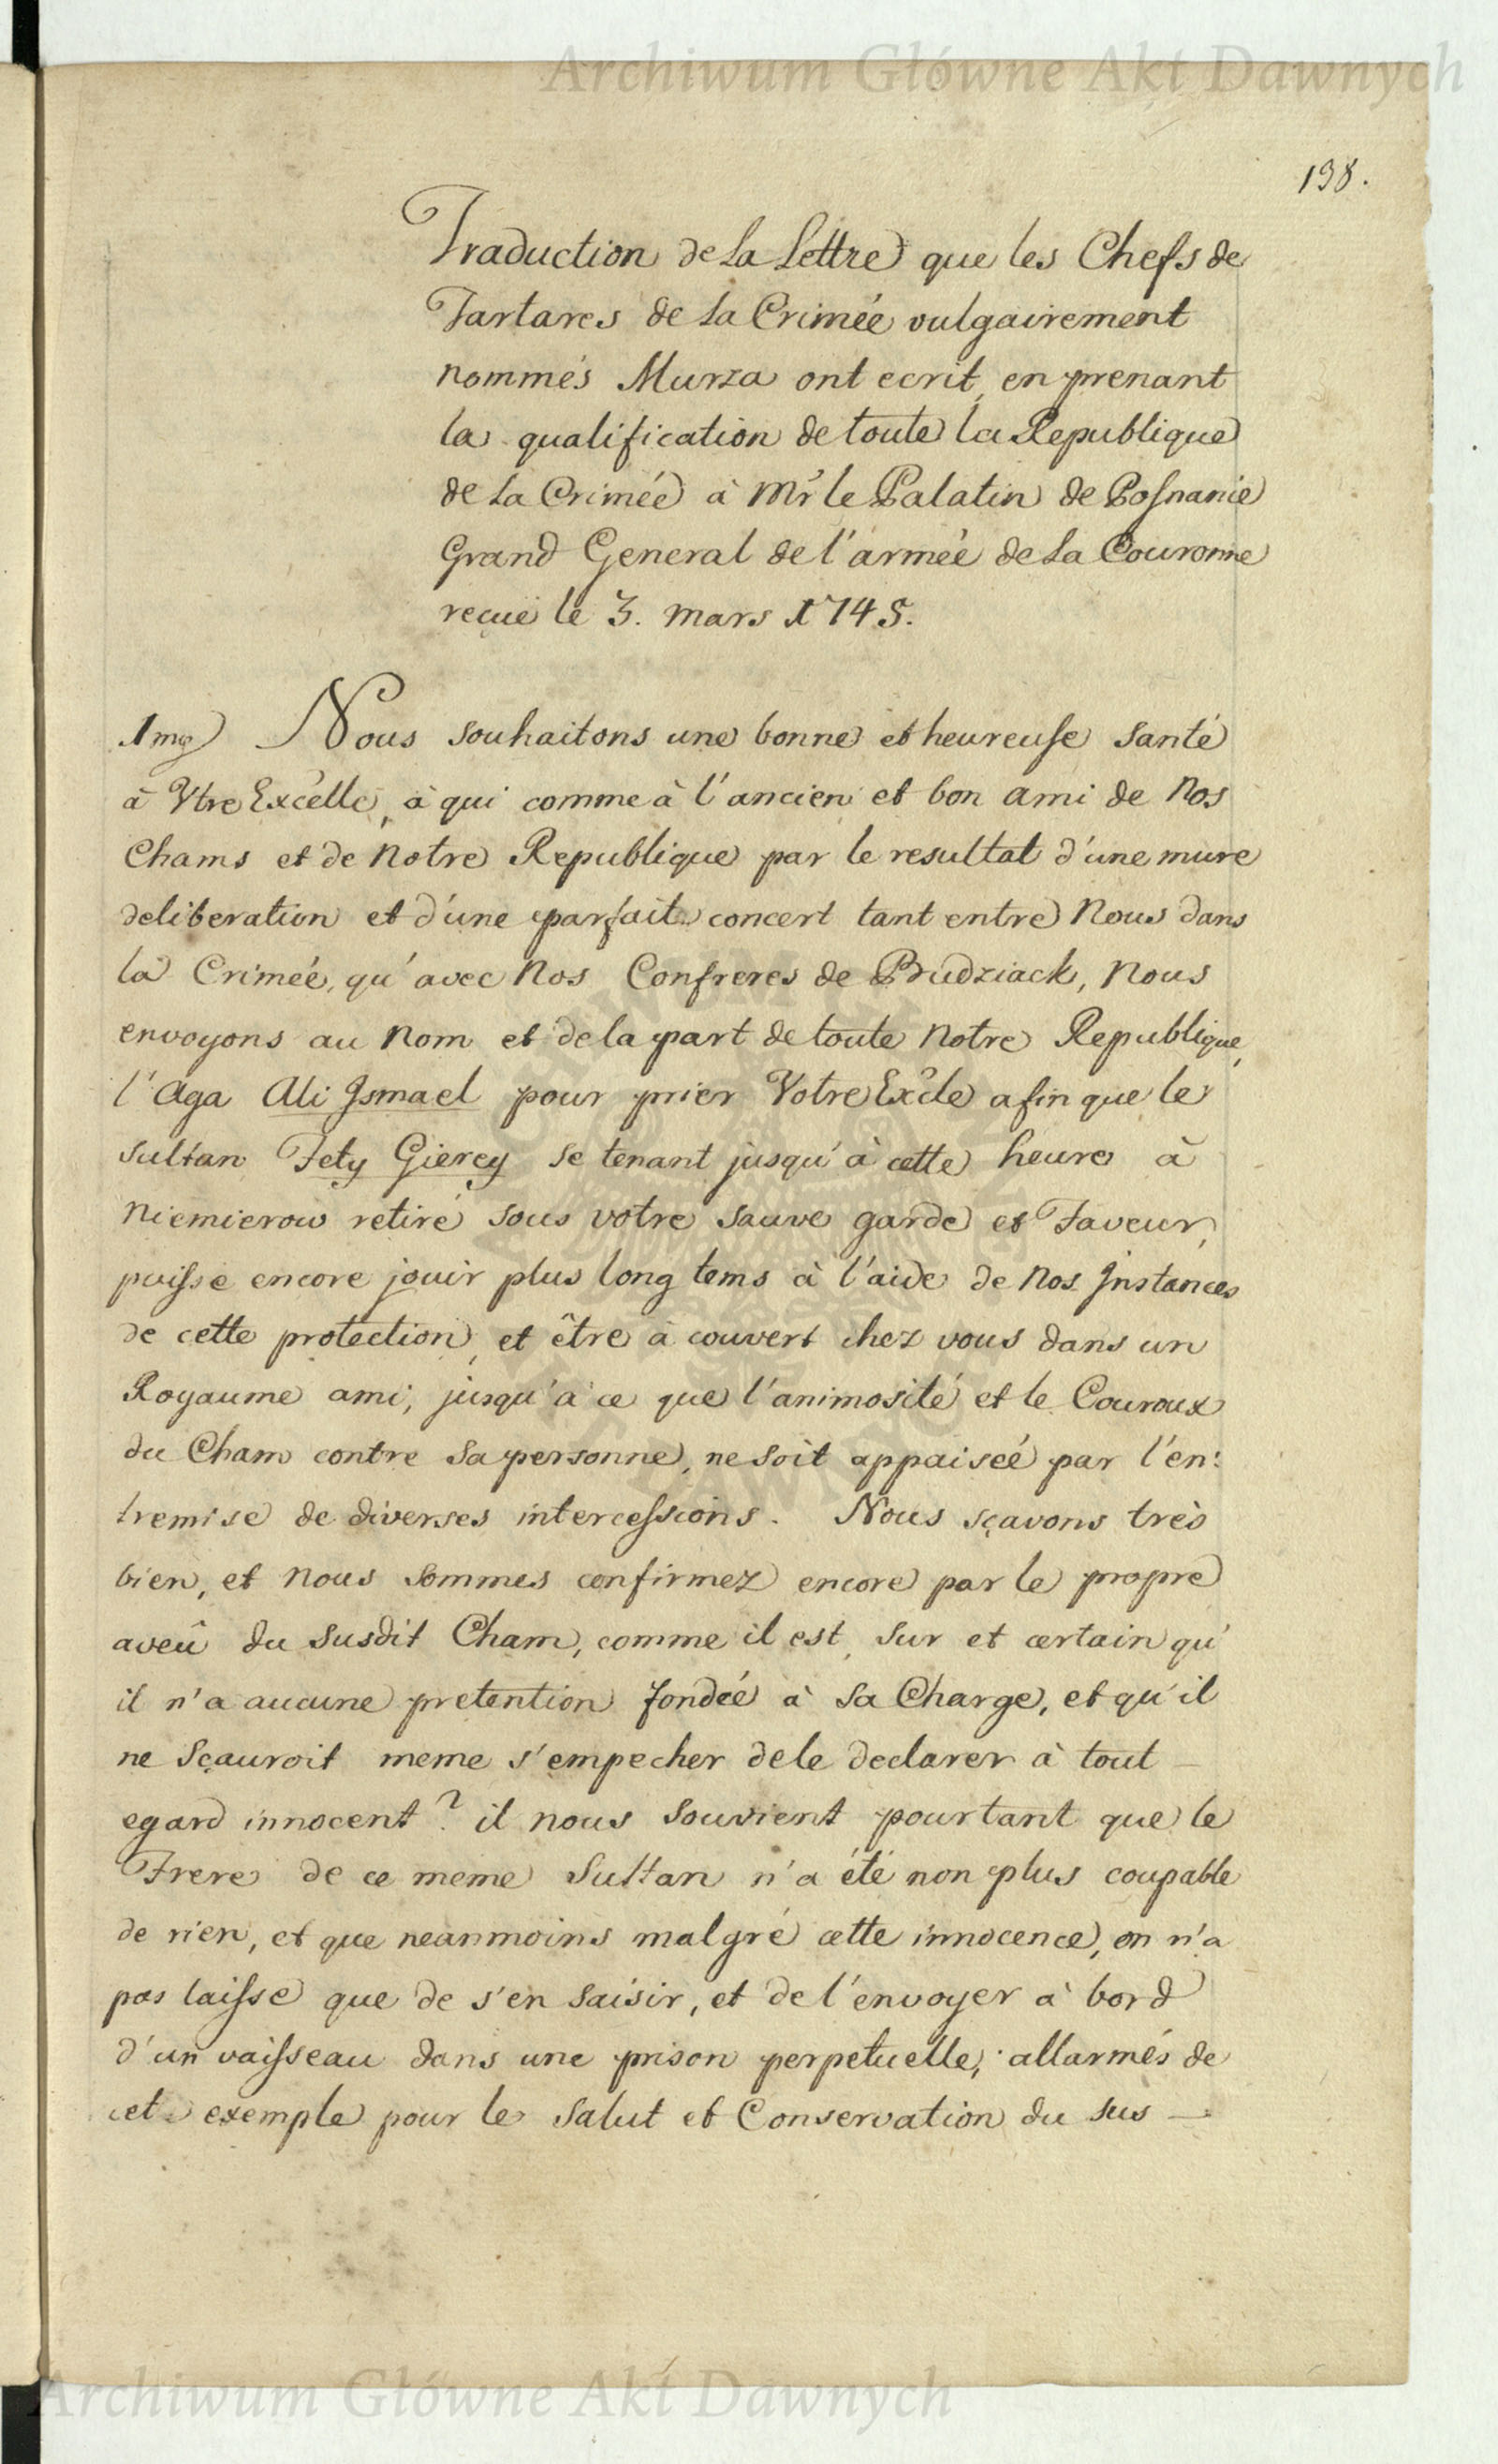 Archiwum Główne Akt Dawnych
198.
Traduction de La Lettre que les Chefs de
Tartares de La Crimée vulgairement
nommés Murza ont ecrit, en prenant
la qualification de toute la Republique
de La Crimée à Mr le Palatin de Posnanie
Grand General de l'armée de La Couronne
reçuë le 3. Mars 1745.
1mo Nous souhaitons une bonne et heureuse Santé
à Vtre Excelle, à qui comme à l'ancien et bon ami de Nos
Chams et de Notre Republique par le resultat d'une mure
deliberation et d'une parfait concert tant entre Nous dans
la Crimée, qu'avec Nos Confreres de Budziack, Nous
envoyons au Nom et de la part de toute Notre Republique,
l'Aga Ali Ismael pour prier Votre Excle afin que le
Sultan Fety Gierey se tenant jusqu'à cette heure à
Niemierow retiré sous votre sauve garde et Faveur,
puisse encore jouir plus long tems à l'aide de Nos Instances
de cette protection, et être à couvert chez vous dans un
Royaume ami, jusqu'à ce que l'animosité et le Couroux
du Cham contre Sa personne, ne soit appaiseé par l'en:
tremise de diverses intercessions. Nous sçavons très
bien, et Nous sommes confirmez encore par le propre
aveû du Susdit Cham, comme il est, sur et certain qu'
il n'a aucune pretention fondeé à Sa Charge, et qu'il
ne Sçauroit meme s'empecher de le declarer à tout
egard innocent? il nous Souvient pourtant que le
Frere de ce meme Sultan n'a été non plus coupable
de rien, et que neanmoins malgré cette innocence, on n'a
pas laisse que de s'en Saisir, et de l'envoyer à bord
d'un vaisseau dans une prison perpetuelle, allarmés de
cet exemple pour le Salut et Conservation du Sus
Archiwum Główne Akt Dawnych